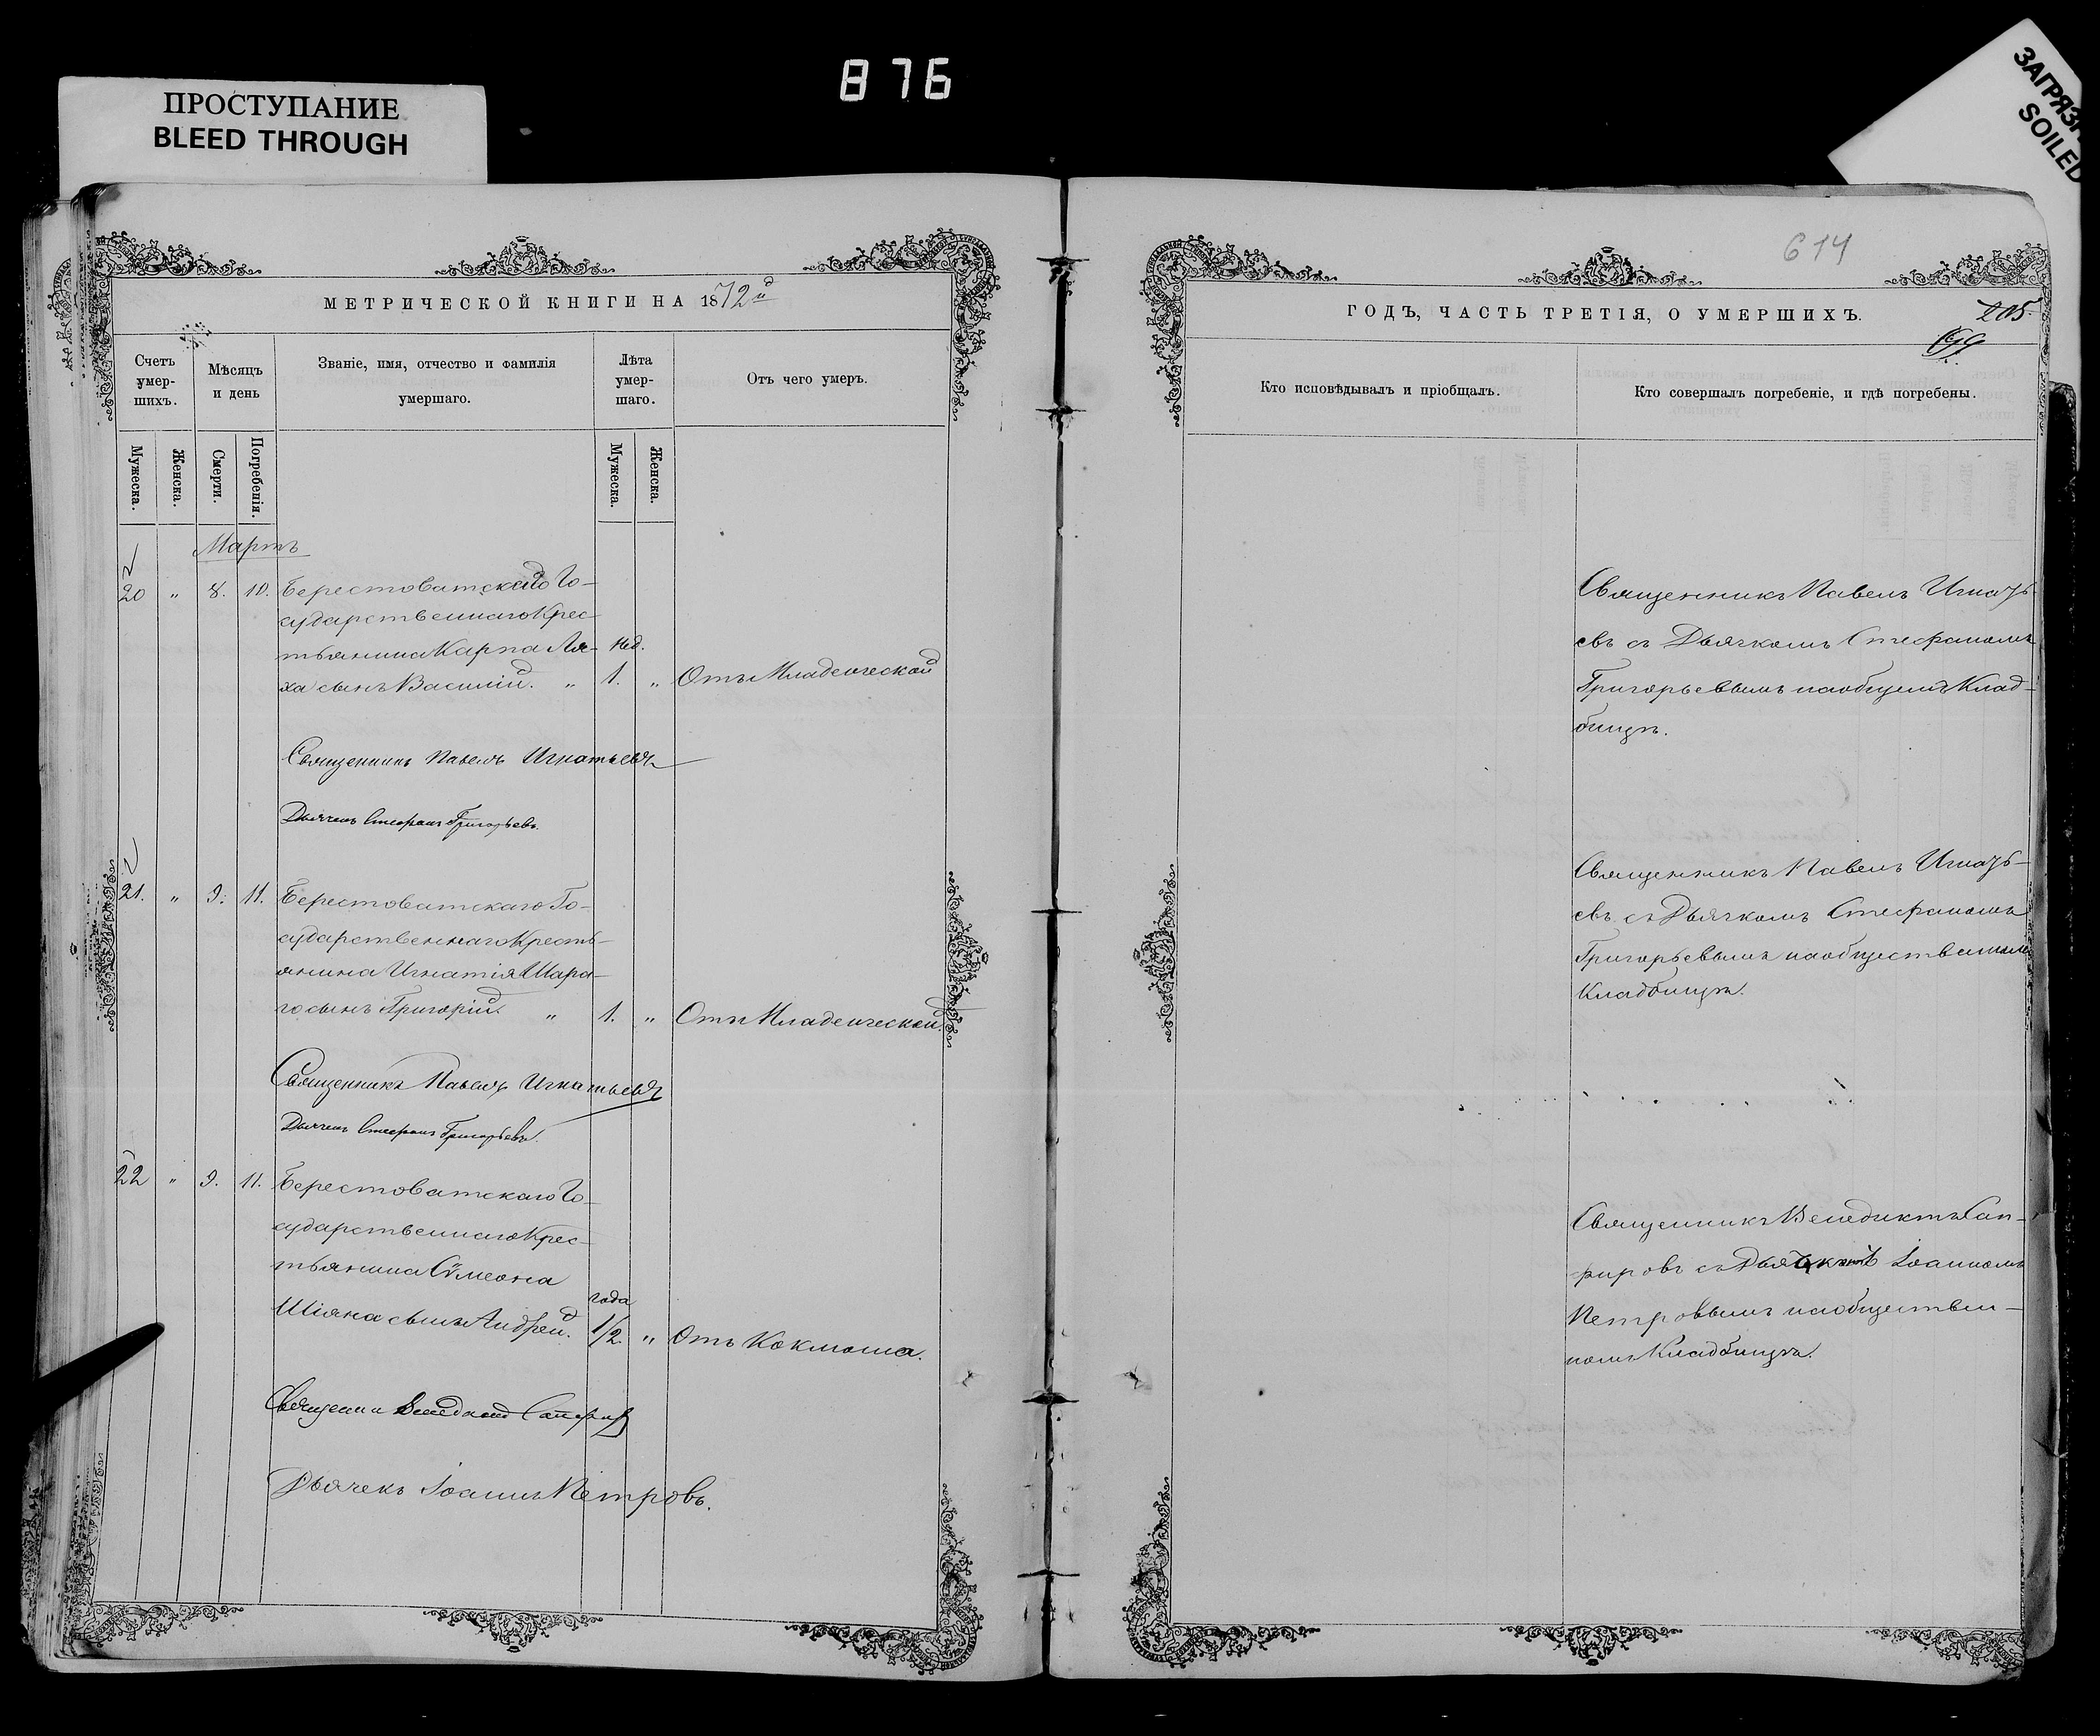 876
ПРОСТУПАНИЕ
BLEED THROUGH
SOILED
МЕТРИЧЕСКОЙ КНИГИ НА 1872й
Счетъ умершихъ.
Мѣсяцъ и день
Званіе, имя, отчество и фамилія умершаго.
Лѣта умершаго.
Отъ чего умеръ.
Мужеска.
Женска.
Смерти.
Погребенія.
Мужеска.
Женска.
Мартъ
20 " 8. 10. Берестоватскаго Го-
сударственнаго Крес
тьянина Карпа Ля- нед.
ха сынъ Василій. " 1. " Отъ Младенческой
Священникъ Павелъ Игнатьевъ
Дьячекъ Стефанъ Григорьевъ.
21. " 9. 11. Берестоватскаго Го-
сударственнаго Кресть-
янина Игнатія Шара-
го сынъ Григорій. " 1. " Отъ Младенческой
Священникъ Павелъ Игнатьевъ
Дьячекъ Стефанъ Григорьевъ.
22 " 9. 11. Берестоватскаго Го-
сударственнаго Крес-
тьянина Сѵмеона
года
Шіяна сынъ Андрей. 1/2. " Отъ Коклюша.
Дьячекъ Іоаннъ Петровъ.
614
ГОДЪ, ЧАСТЬ ТРЕТІЯ, О УМЕРШИХЪ.
205
Кто исповѣдывалъ и пріобщалъ.
Кто совершалъ погребеніе, и гдѣ погребены.
Священникъ Павелъ Игнать-
евъ съ Дьячкомъ Стефаномъ
Григорьевымъ на общемъ Клад-
бищѣ.
Священникъ Павелъ Игнать-
евъ съ Дьячкомъ Стефаномъ
Григорьевымъ на общественномъ
Кладбищѣ.
Священникъ Венедиктъ Сап-
фировъ съ Дьячкомъ Іоанномъ
Петровымъ на обществен-
номъ Кладбищѣ.